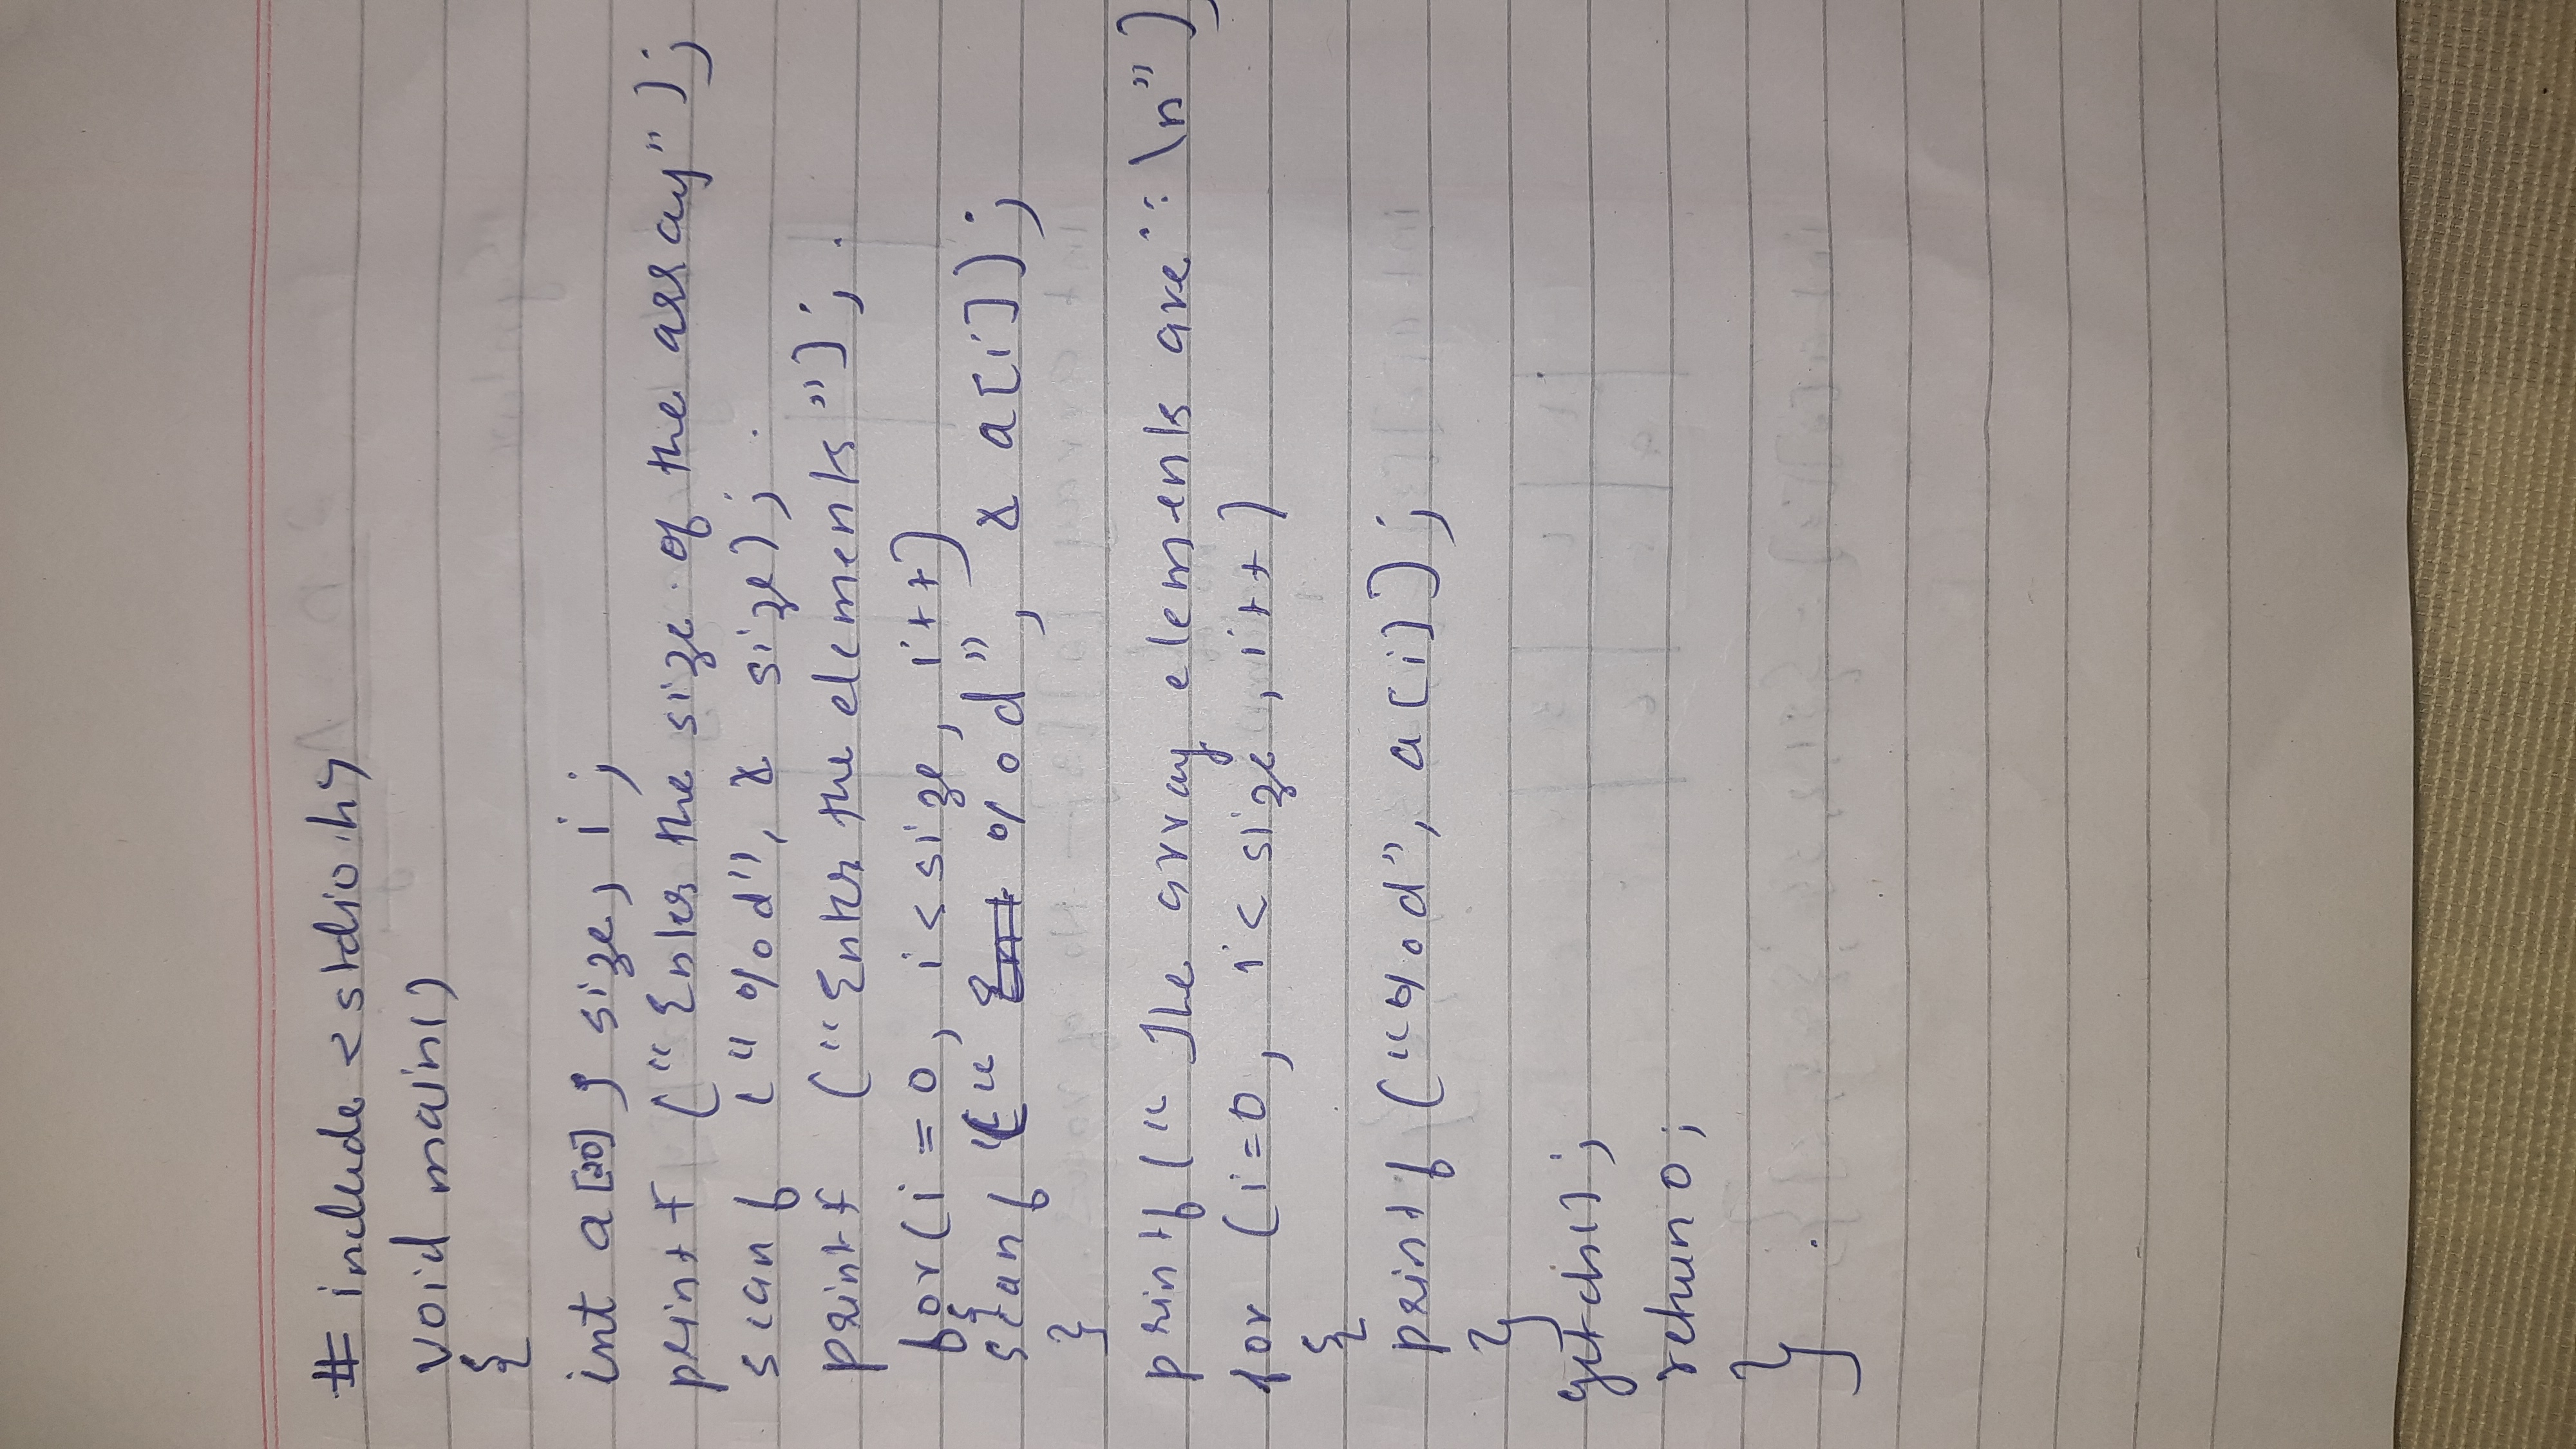 # include <stdio.h>
void main()
{
int a[20], size, i;
printf ("Enter the size of the array");
scanf ("%d", & size);
printf ("Enter the elements");
for(i = 0, i < size, i++)
{
scanf (" %d", & a[i]);
}
printf (" The array elements are : \n")
for (i=0, i< size, i++)
{
printf ("%d", a[i]);
}
getch();
return 0;
}